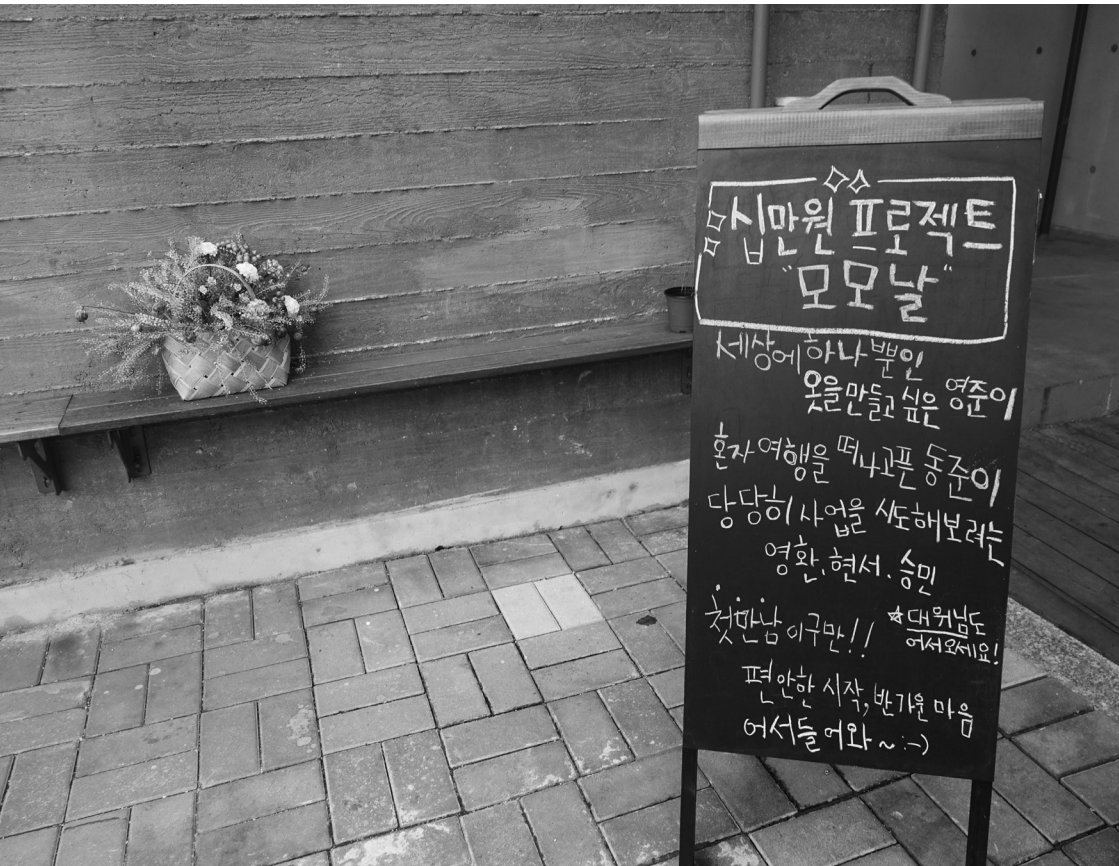 십만원 프로젝트
"모모날"
세상에 하나뿐인
옷을 만들고 싶은 영준이
혼자 여행을 떠나고픈 동준이
당당히 사업을 시도해보려는
영환.현서.승민
첫만남이구만!!
☆대원님도
어서오세요!
편안한 시작, 반가운 마음
어서들어와~:-)